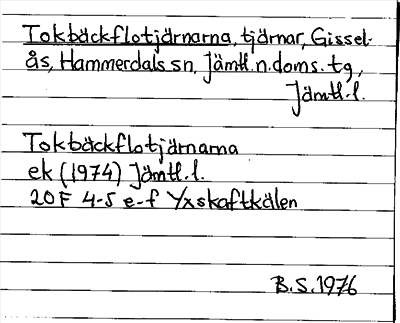 Tokbäckflotjärnarna, tjärnar, Gissel-
ås, Hammerdals sn, Jämtl. n. doms. tg,
Jämtl. l.
Tokbäckflotjärnarna
ek (1974) Jämtl. l.
20F 4-5 e-f Yxskaftkälen
B.S. 1976